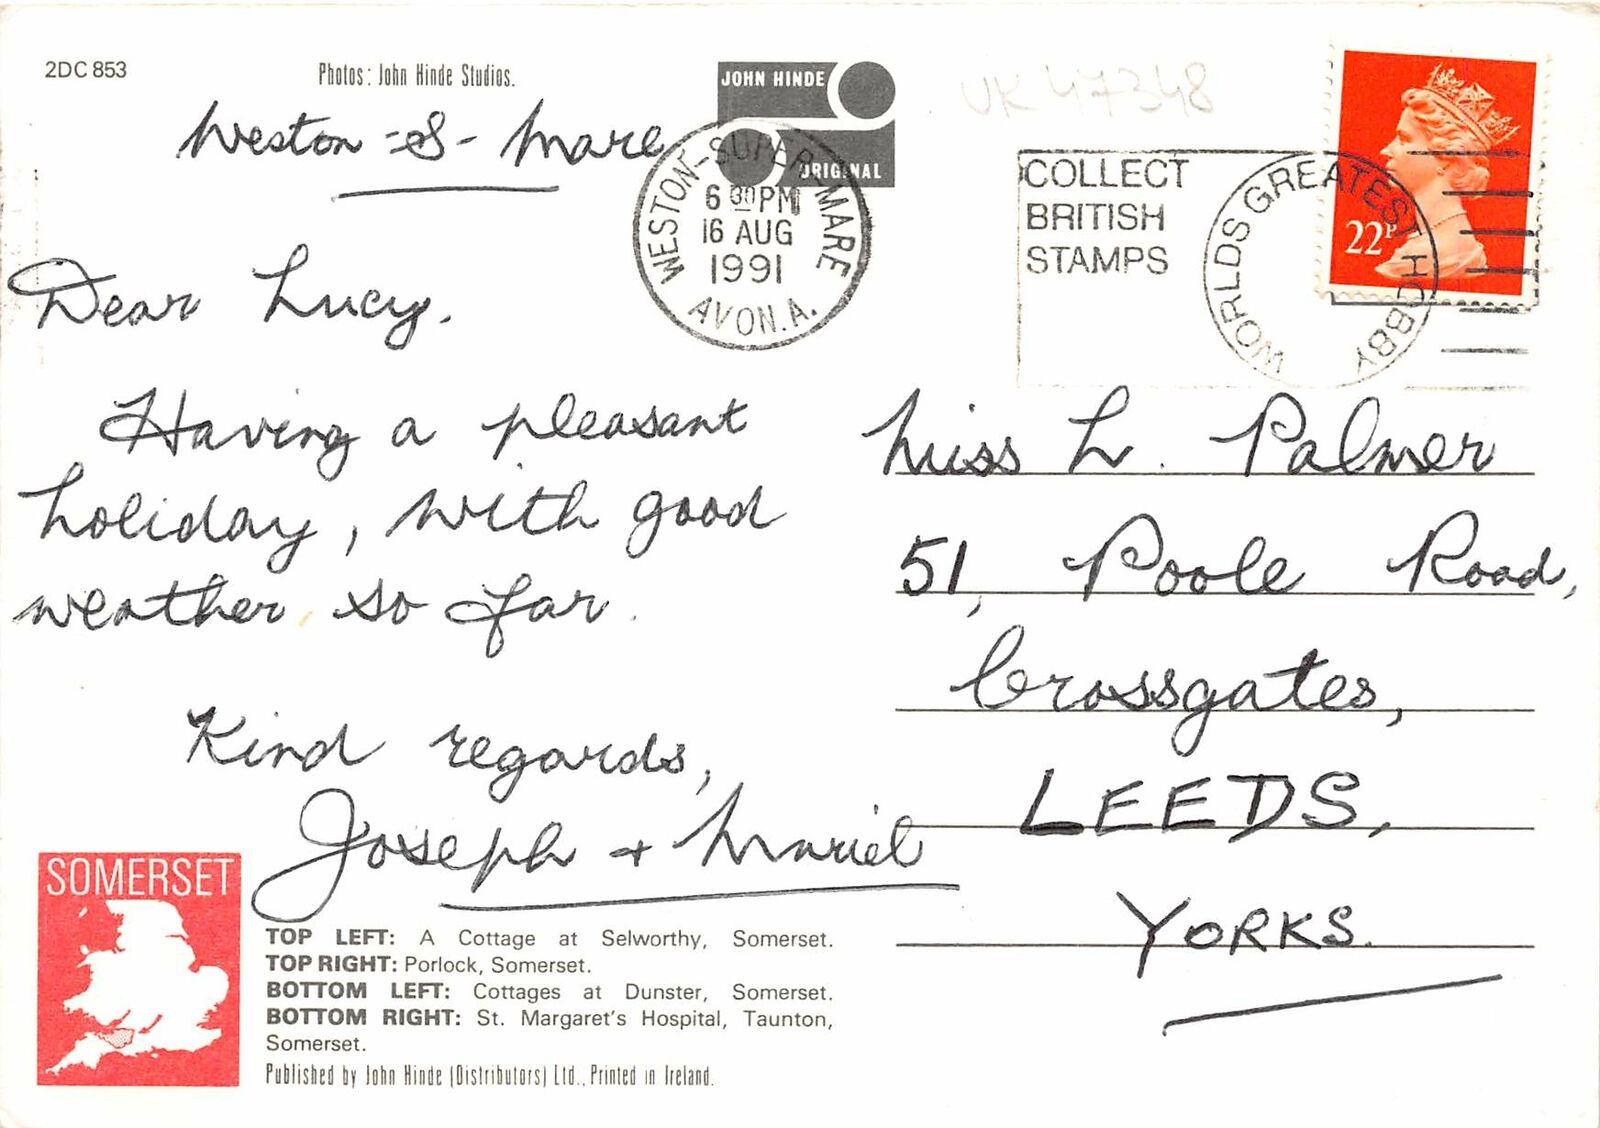 2DC 853
Photos: John Hinde Studios.
JOHN HINDE
ORIGINAL
UK 47348
Weston-S-Mare
WESTON-SUPER-MARE
6 30PM
16 AUG
1991
AVON.A.
COLLECT
BRITISH
STAMPS
WORLDS GREATEST HOBBY
22P
Dear Lucy.
Having a pleasant
holiday, with good
weather so far.
Kind regards,
Joseph + Muriel
Miss L. Palmer
51, Poole Road,
Crossgates,
LEEDS,
YORKS.
SOMERSET
TOP LEFT: A Cottage at Selworthy, Somerset.
TOP RIGHT: Porlock, Somerset.
BOTTOM LEFT: Cottages at Dunster, Somerset.
BOTTOM RIGHT: St. Margaret's Hospital, Taunton,
Somerset.
Published by John Hinde (Distributors) Ltd., Printed in Ireland.